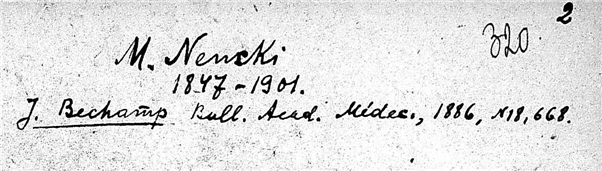 2
320
M. Nencki
1847-1901.
J. Bechamp Bull. Acad. Médec., 1886, N18, 668.